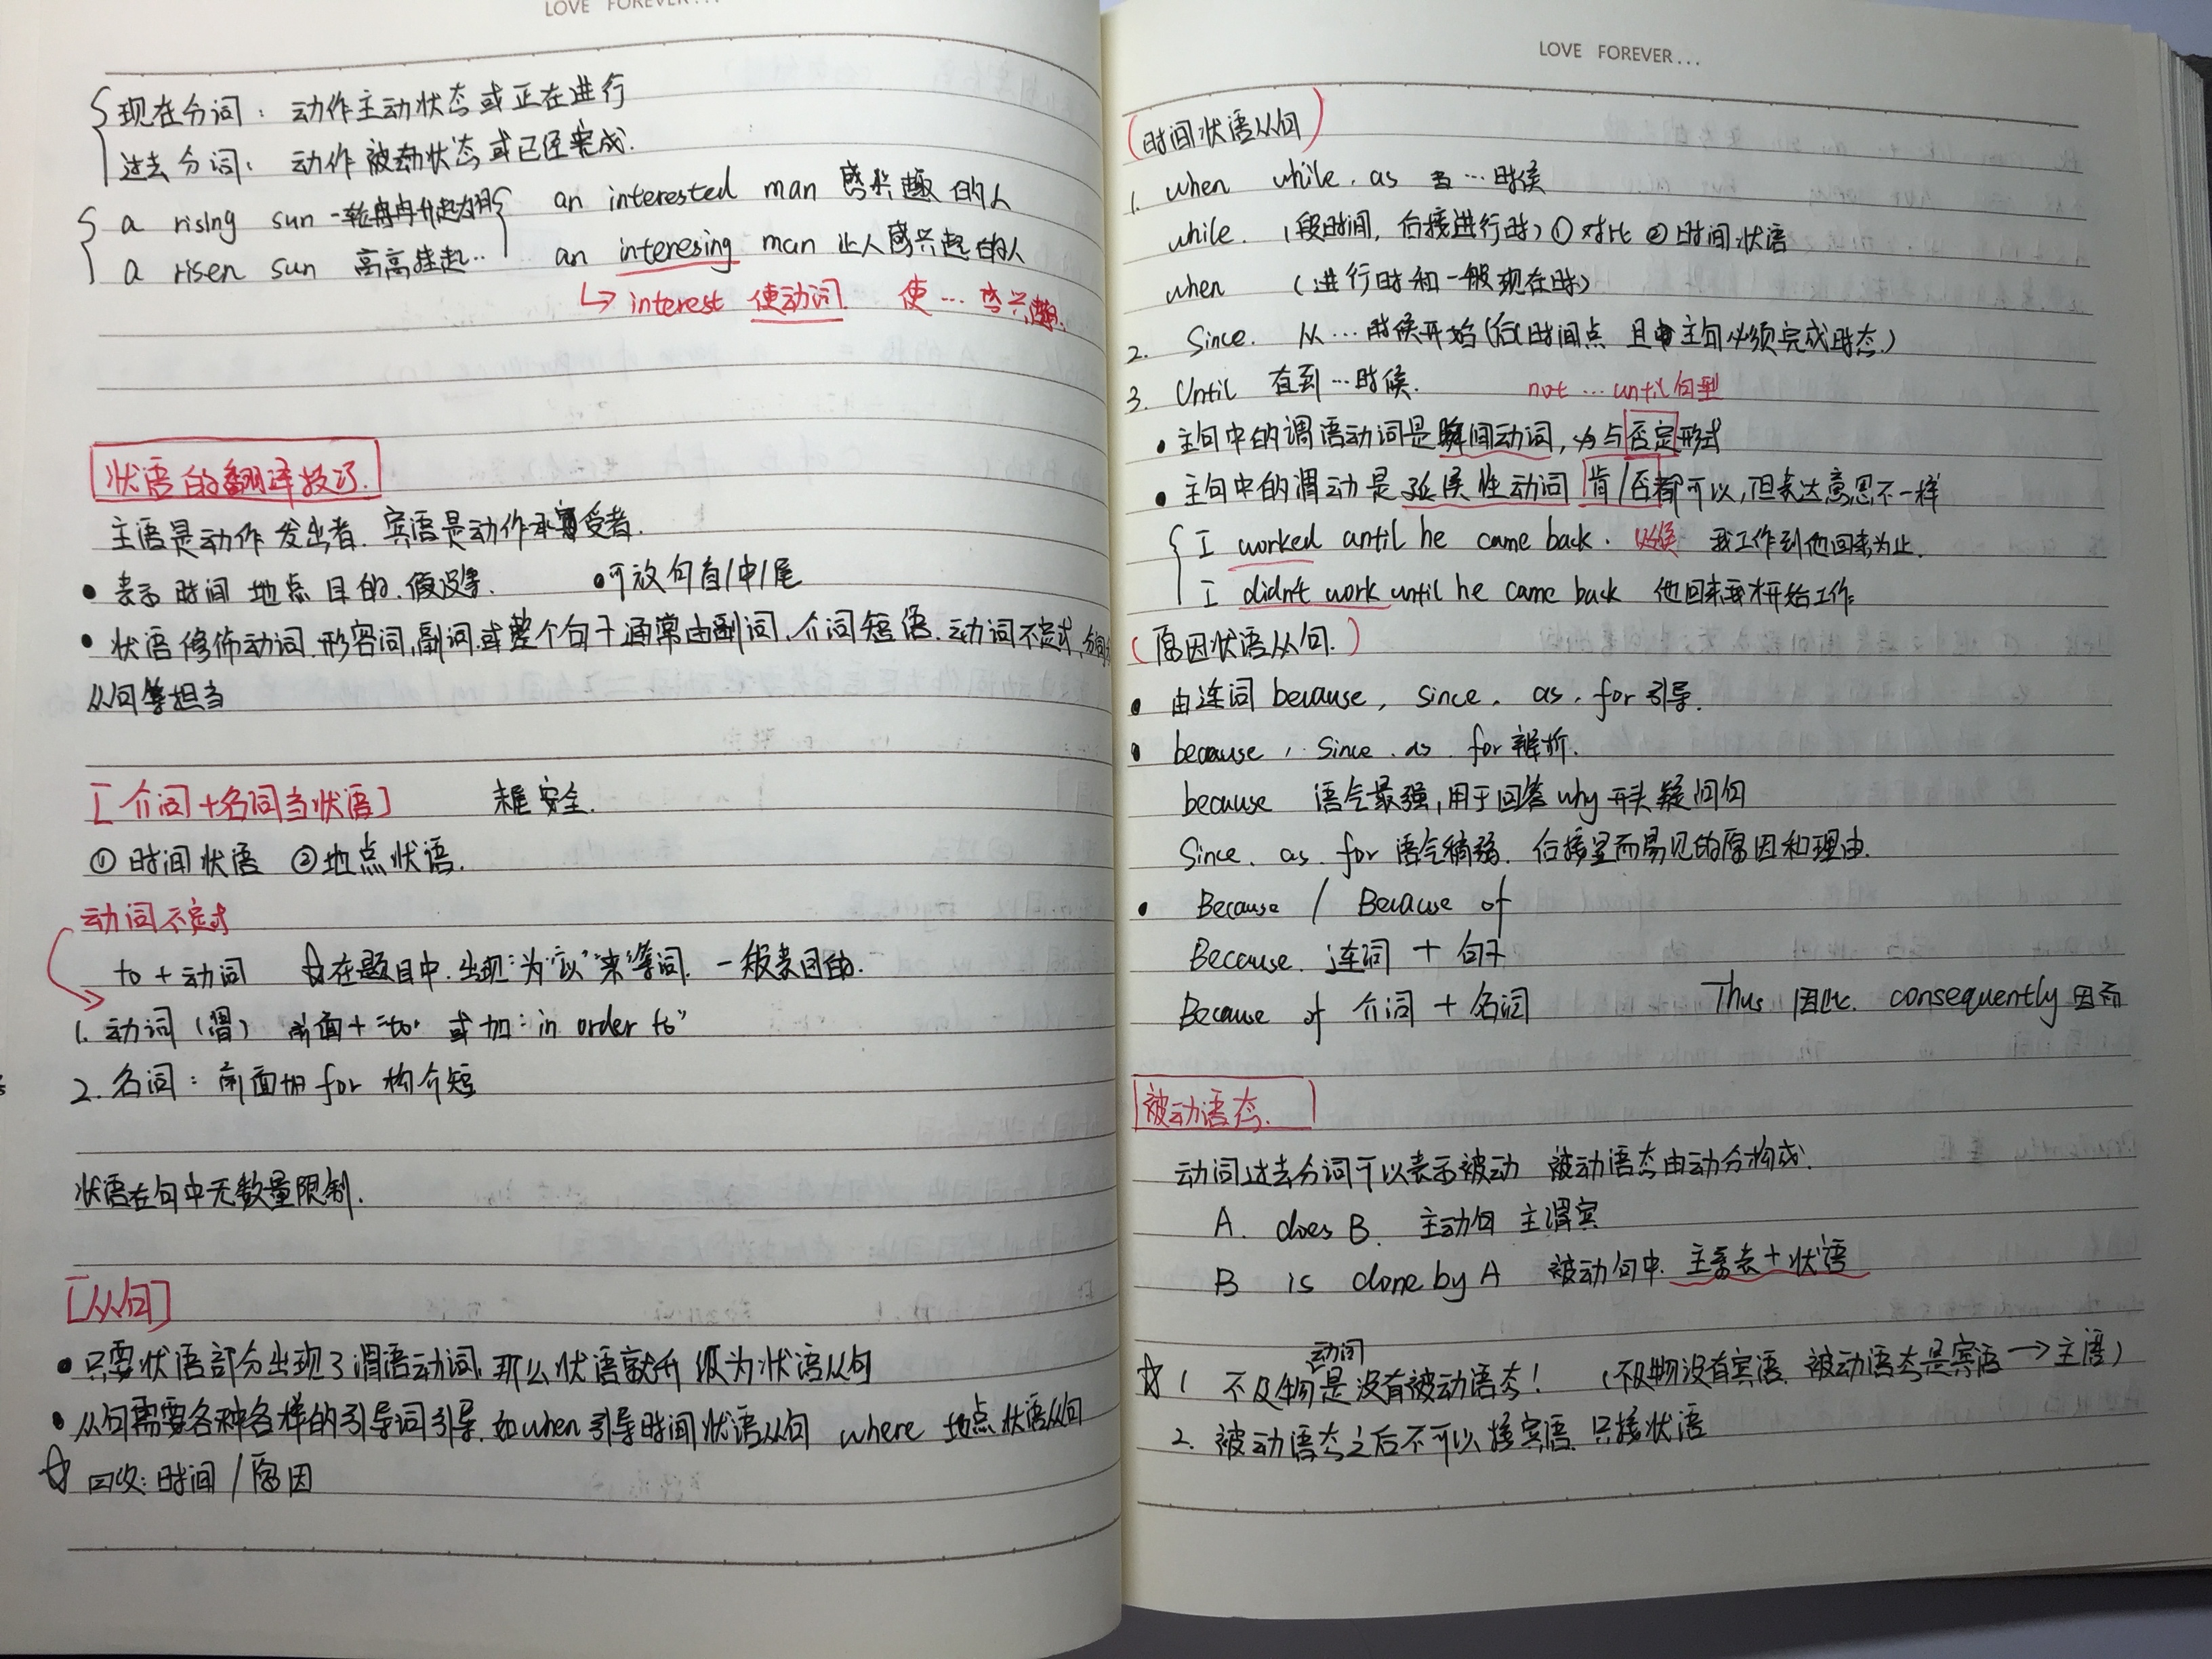 LOVE FOREVER...
现在分词：动作主动状态或正在进行
过去分词：动作被动状态或已经完成.
a rising sun 一轮冉冉升起的
a risen sun 高高挂起..
an interested man 感兴趣的人
an interesing man 让人感兴起的人
↳ interest 使动词 使…感兴趣.
状语的翻译技巧.
主语是动作发出者. 宾语是动作承受者.
• 表示 时间 地点 目的. 假设等. •可放句首/中/尾
• 状语修饰动词.形容词,副词.或整个句子通常由副词.介词短语.动词不定式.分词
从句等担当
[介词+名词当状语] 末尾安全.
① 时间状语 ②地点状语.
动词不定式
to + 动词 ☆在题目中.出现"为"以"来"等词. 一般表目的.
1. 动词（谓） 前面+"to" 或加"in order to"
2. 名词：前面加 for 构介短
状语在句中无数量限制.
[从句]
• 只要状语部分出现了谓语动词,那么状语就升级为状语从句
• 从句需要各种各样的引导词引导.如when引导时间状语从句 where 地点状语从句
☆ 回收:时间/原因
LOVE FOREVER...
(时间状语从句)
1. when while. as 当…时候
while. (段时间, 后接进行时) ①对比 ②时间状语
when (进行时和一般现在时)
2. Since. 从…时候开始(后时间点 且主句必须完成时态)
3. Until 直到…时候. not…until句型
• 主句中的谓语动词是瞬间动词,与否定形式
• 主句中的谓动是延续性动词 肯/否都可以,但表达意思不一样
I worked until he came back. 我工作到他回来为止.
I didn't work until he came back 他回来我才开始工作.
(原因状语从句.)
• 由连词 because, since. as. for 引导.
• because, Since. as. for 辨析.
because 语气最强,用于回答why开头疑问句
Since. as. for 语气稍弱. 后接显而易见的原因和理由.
• Because / Because of
Because. 连词 + 句子
Because of 介词 + 名词 Thus 因此. consequently 因而
被动语态.
动词过去分词可以表示被动 被动语态由动分构成.
A. does B. 主动句 主谓宾
B is done by A 被动句中. 主系表+状语
☆ 1 不及物动词是没有被动语态! (不及物没有宾语. 被动语态是宾语→主语)
2. 被动语态之后不可以接宾语.只接状语